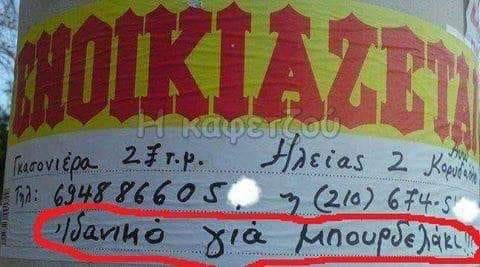 ΕΝΟΙΚΙΑΖΕΤΑΙ
Η καφετζού
Γκασονιέρα 27τ.μ. Ηλείας 2
Τηλ: 694886605 ή (210) 674-5
Ιδανικό γιά μπουρδελάκι!!!